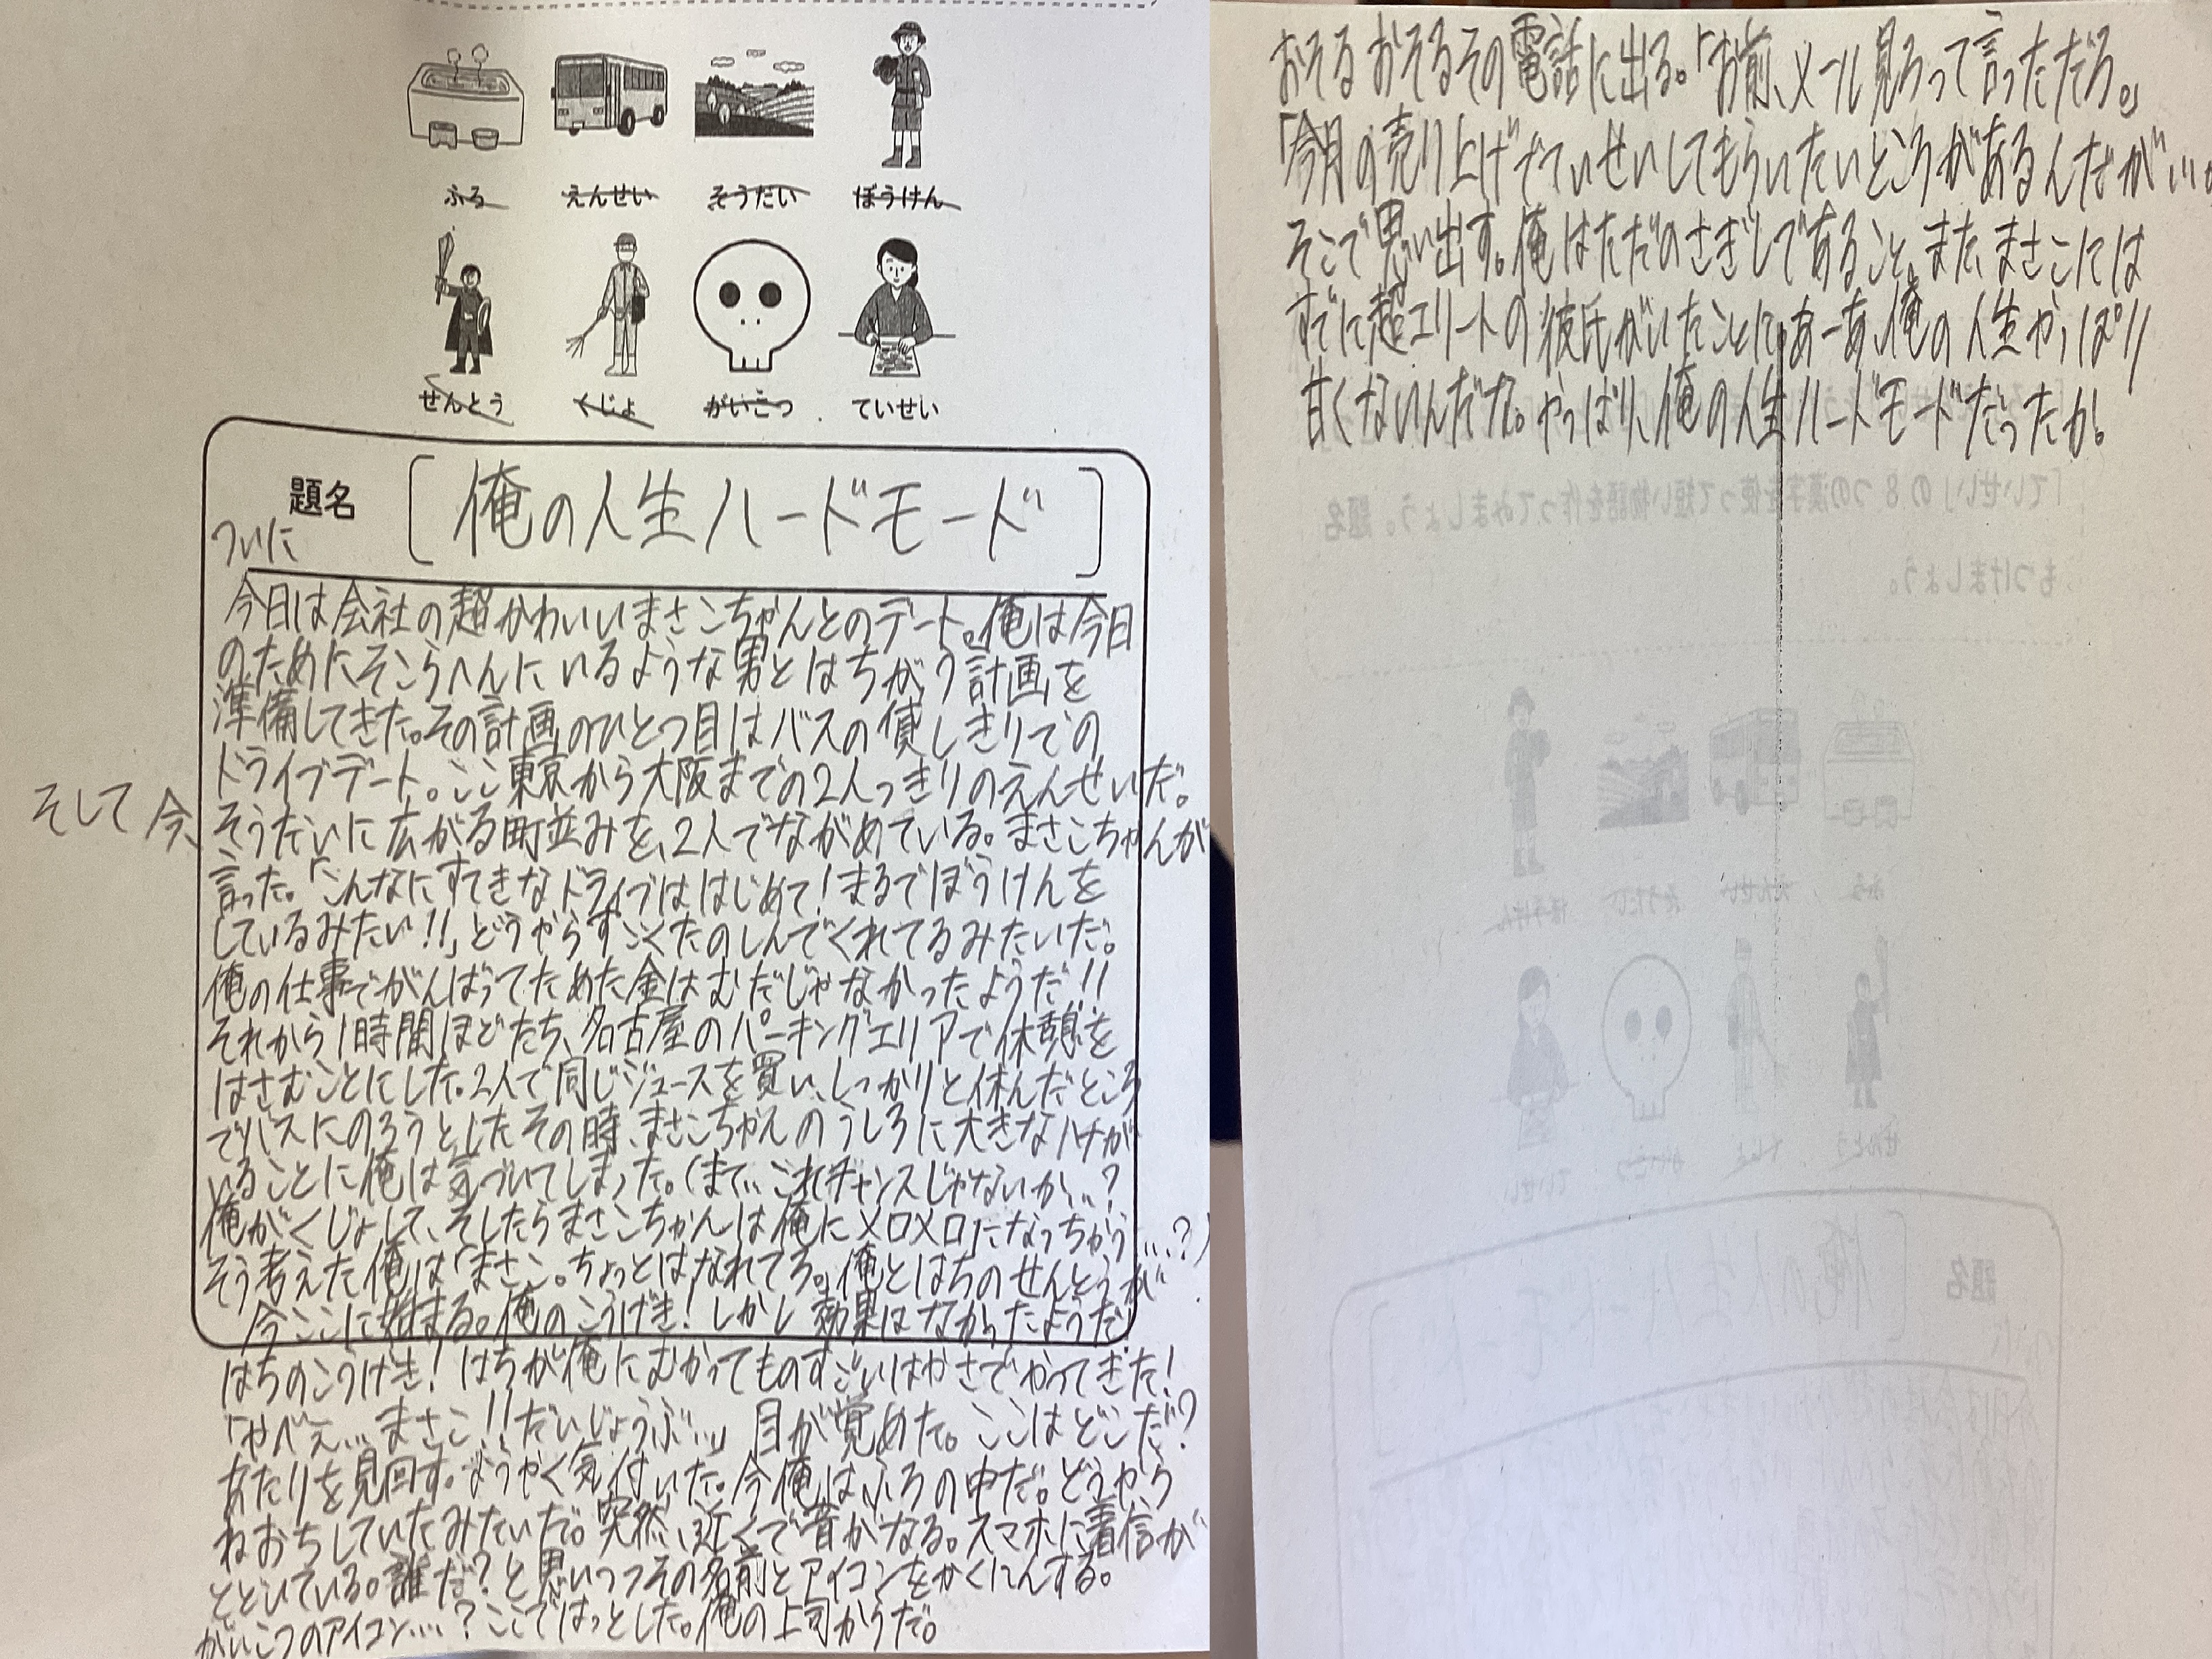 ふろ
えんせい
そうだい
ぼうけん
せんとう
くじょ
がいこつ
ていせい
題名
[俺の人生ハードモード]
ついに
今日は会社の超かわいいまさこちゃんとのデート。俺は今日
のためにそこらへんにいるような男とはちがう計画を
準備してきた。その計画のひとつ目はバスの貸しきりでの
ドライブデート。ここ東京から大阪までの2人っきりのえんせいだ。
そして今、そうだいに広がる町並みを、2人でながめている。まさこちゃんが
言った。「こんなにすてきなドライブははじめて!まるでぼうけんを
しているみたい!!」どうやらすごくたのしんでくれてるみたいだ。
俺の仕事でがんばってためた金はむだじゃなかったようだ!!
それから1時間ほどたち、名古屋のパーキングエリアで休憩を
はさむことにした。2人で同じジュースを買い、しっかりと休んだところ
でバスにのろうとしたその時、まさこちゃんのうしろに大きなハチが
いることに俺は気づいてしまった。(まて、これチャンスじゃないか…?
俺がくじょして、そしたらまさこちゃんは俺にメロメロになっちゃう…?)
そう考えた俺は「まさこ。ちょっとはなれてろ。」俺とはちのせんとうが
今ここに始まる。俺のこうげき!しかし効果はなかったようだ!
はちのこうげき!はちが俺にむかってものすごいはやさでやってきた!
「やべえ…まさこ!!だいじょうぶ…」目が覚めた。ここはどこだ?
あたりを見回す。ようやく気付いた。今俺はふろの中だ。どうやら
ねおちしていたみたいだ。突然、近くで音がなる。スマホに着信が
とどいている。誰だ?と思いつつその名前とアイコンをかくにんする。
がいこつのアイコン…?ここではっとした。俺の上司からだ。
おそるおそるその電話に出る。「お前、メール見ろって言っただろ。」
「今月の売り上げでていせいしてもらいたいところがあるんだが…
そこで思い出す。俺はただのさぎしであること。また、まさこには
すでに超エリートの彼氏がいたことに。あーあ、俺の人生やっぱり
甘くないんだな。やっぱり、俺の人生ハードモードだったか。
「ていせい」の8つの漢字を使って短い物語を作ってみましょう。題名
もつけましょう。